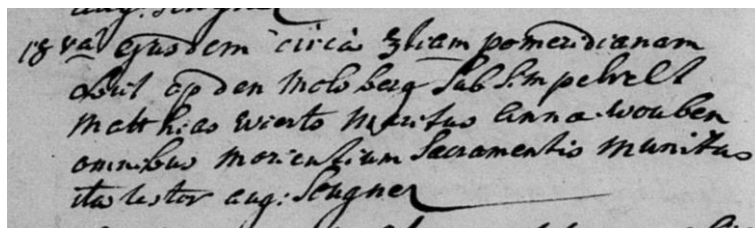 aug: Leugner
18va ejusdem circa 3tiam pomeridianam
obiit op den Molsberg sub Simpelvelt
Matthias Wierts Maritus Anna Wouben
omnibus morientium Sacramentis munitus
ita testor aug: Leugner